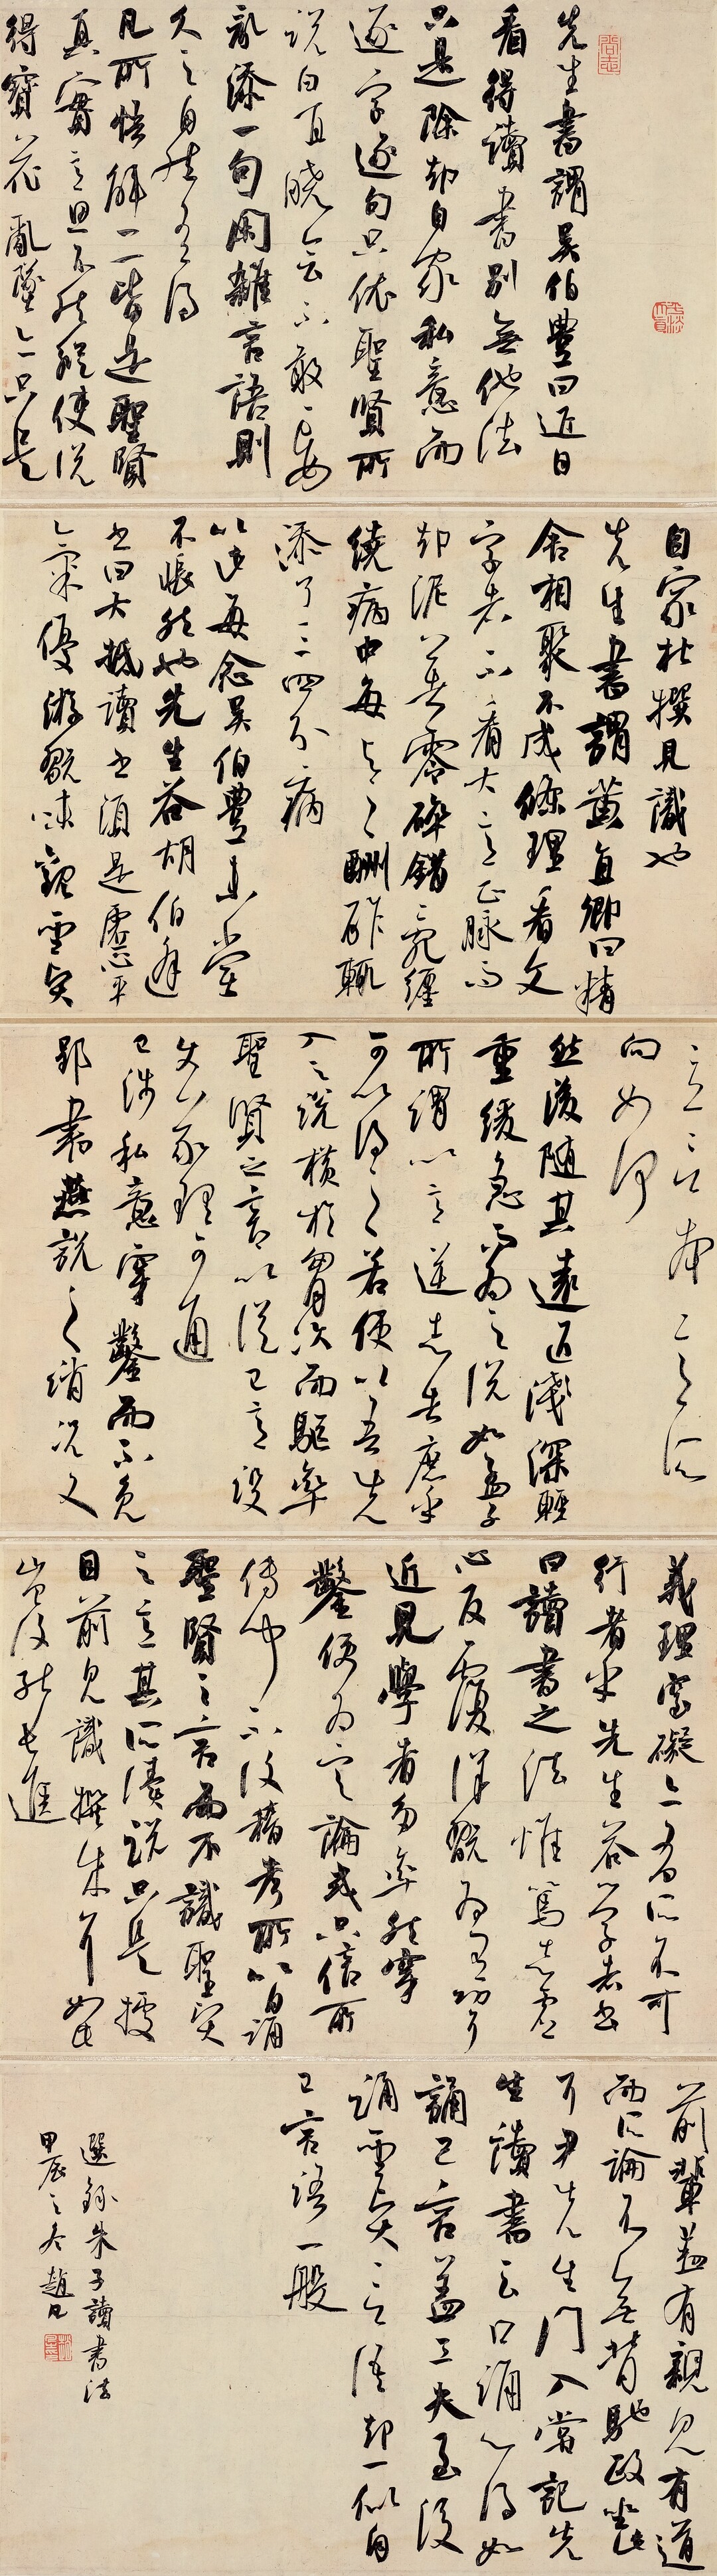 先生書謂吳伯豐曰近日
看得讀書別無他法
只是除却自家私意而
逐字逐句只依聖賢所
說白直曉會不敢妄
亂添一句閑雜言語則
久之自然有得
凡所悟解一一皆是聖賢
真實意思不然縱使說
得寶花亂墜亦只是
自家杜撰見識也
先生書謂黃直卿曰精
舍相聚不成條理看文
字者不看大意正脉而
却泥著零碎錯亂纏
繞病中每與之酬酢輒
添了三四分病
以此每念吳伯豐未嘗
不悵然也先生答胡伯逢
書曰大抵讀書須是虛心平
氣優游玩味觀聖賢
立言本意所
向如何
然後隨其遠近淺深輕
重緩急而為之說如孟子
所謂以意逆志者庶乎
可以得之若便以吾先
入之說橫於胷次而驅率
聖賢之言以從己意設
使義理可通
已涉私意穿鑿而不免
郢書燕說之誚况又
義理窒礙亦有所不可
行者乎先生答學者書
曰讀書之法惟篤志虛
心反覆詳玩為有功耳
近見學者多率然穿
鑿便為定論或只信所
傳聞不復稽考所以日誦
聖賢之言而不識聖賢
之意其所誦說只是據
目前見識撰成耳如此
豈復能長進
前輩蓋有親見有道
而所論不無背馳政坐此
耳尹先生門人嘗記先
生讀書云口誦心得如
誦己言蓋工夫至後
誦聖賢言語却一似自
己言語一般
選錄朱子讀書法
甲辰之冬趙凡